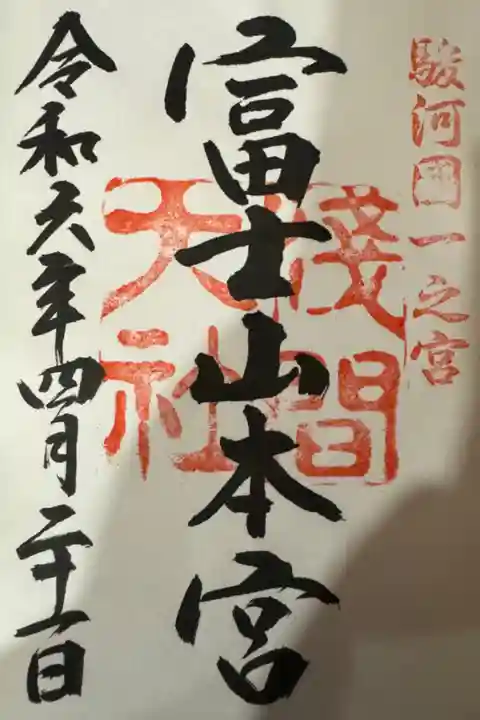 駿河國一之宮
富士山本宮
淺間
大社
令和六年四月二十一日